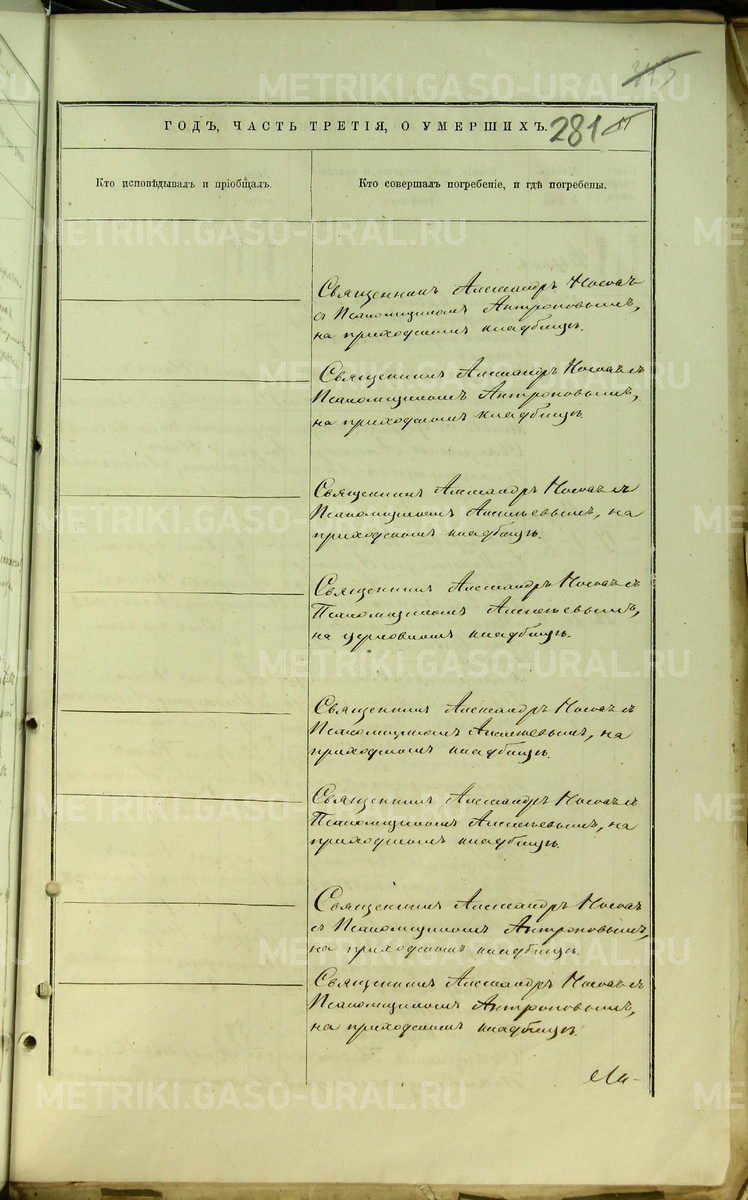 343
ГОДЪ, ЧАСТЬ ТРЕТІЯ, О УМЕРШИХЪ. 281
Кто исповѣдывалъ и пріобщалъ.
Кто совершалъ погребеніе, и гдѣ погребены.
Священникъ Александръ Носовъ
съ Псаломщикомъ Антроповымъ,
на приходскомъ кладбищѣ.
Священникъ Александръ Носовъ съ
Псаломщикомъ Антроповымъ,
на приходскомъ кладбищѣ.
Священникъ Александръ Носовъ съ
Псаломщикомъ на
приходскомъ кладбищѣ.
Священникъ Александръ Носовъ съ
Псаломщикомъ
на церковномъ кладбищѣ.
Священникъ Александръ Носовъ съ
Псаломщикомъ на
приходскомъ кладбищѣ.
Священникъ Александръ Носовъ съ
Псаломщикомъ на
приходскомъ кладбищѣ.
Священникъ Александръ Носовъ
съ Псаломщикомъ Антроповымъ,
на приходскомъ кладбищѣ.
Священникъ Александръ Носовъ съ
Псаломщикомъ Антроповымъ,
на приходскомъ кладбищѣ.
METRIKI.GASO-URAL.RU